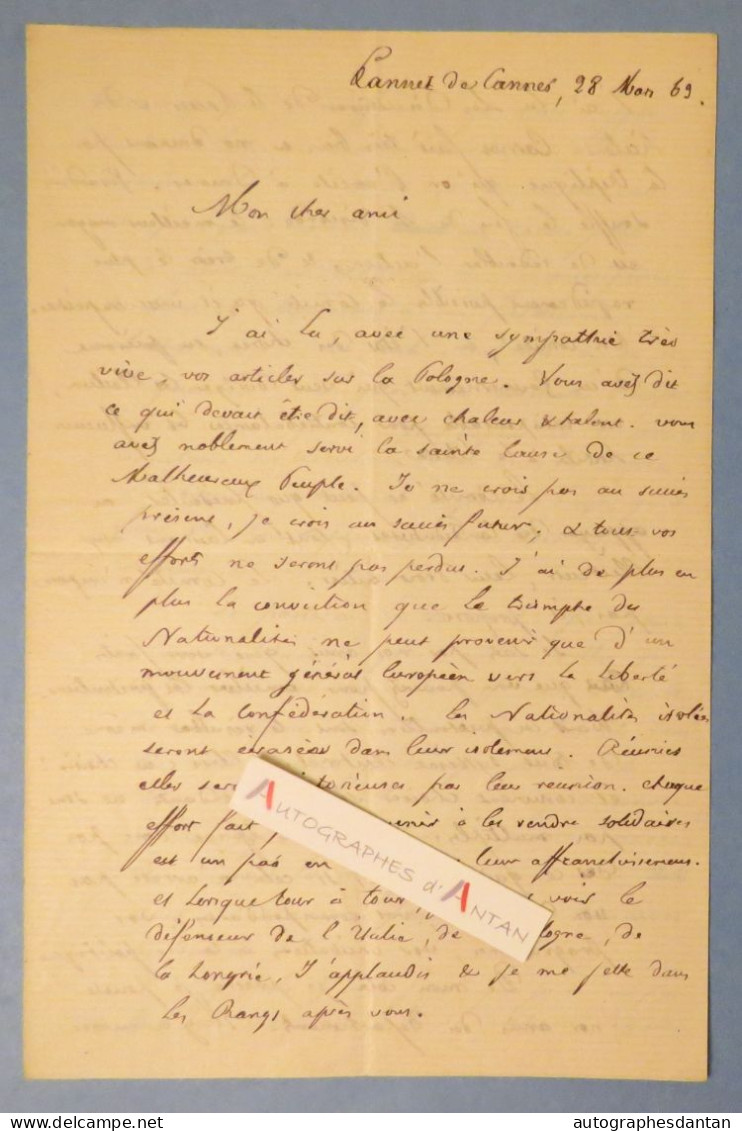 Cannet de Cannes, 28 Mars 69.
Mon cher ami
J'ai lu, avec une sympathie très
vive, vos articles sur la Pologne. Vous avez dit
ce qui devait être dit, avec chaleur & talent. vous
avez noblement servi la sainte cause de ce
Malheureux Peuple. Je ne crois pas au succès
présent, je crois au succès futur. & tous vos
efforts ne seront pas perdus. J'ai de plus en
plus la conviction que le triomphe des
Nationalités ne peut provenir que d'un
mouvement général Européen vers la liberté
et la confédération. les Nationalités isolées
seront écrasées dans leur isolement. Réunies
elles victorieuses par leur reunion. chaque
effort fait à les rendre solidaires
est un pas en leur affranchissement.
et lorsque tour à tour, voir le
défenseur de l'Italie, de Pologne, de
la hongrie, J'applaudis & je me jette dans
les Rangs après vous.
AUTOGRAPHES d'ANTAN
delcampe.net
autographesdantan